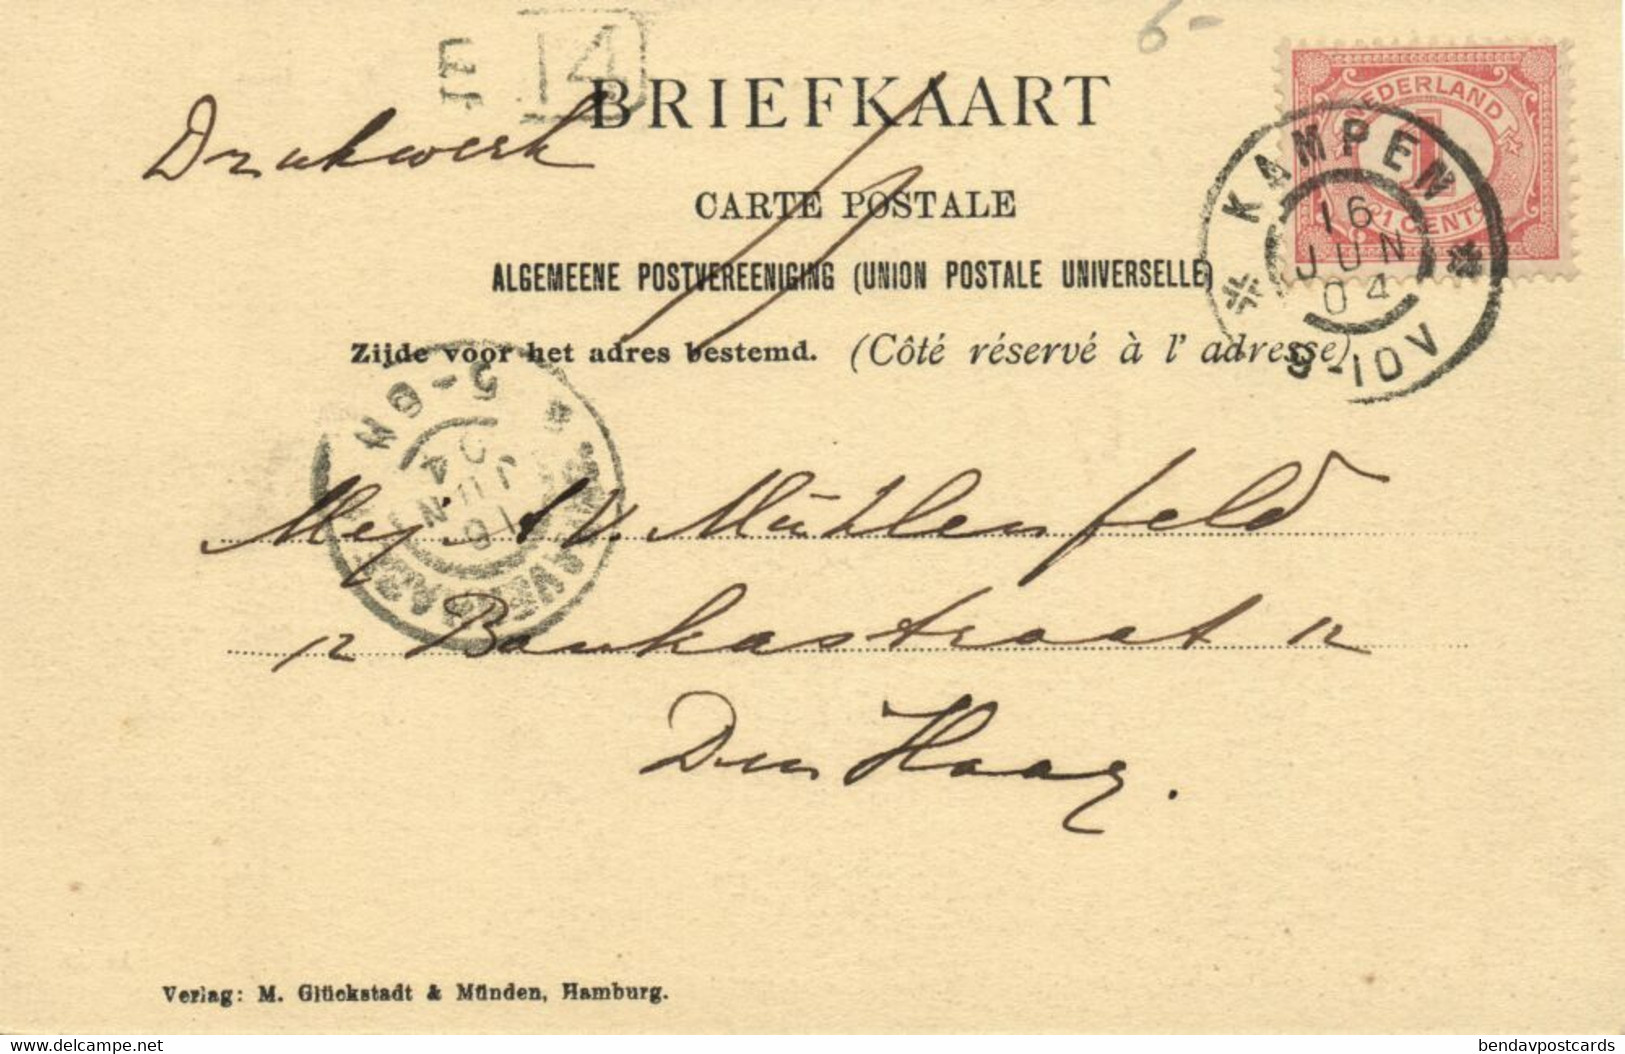 6-
JE 14
BRIEFKAART
Drukwerk
CARTE POSTALE
ALGEMEENE POSTVEREENIGING (UNION POSTALE UNIVERSELLE)
Zijde voor het adres bestemd. (Côté réservé à l' adresse)
NEDERLAND
1
1 CENT
KAMPEN
16
JUN
04
9-10V
5-6N
16
JUN
04
Mej. A V. Mühlenfeld
12 Bankastraat 12
Den Haag.
Verlag: M. Glückstadt & Münden, Hamburg.
delcampe.net
bendavpostcards